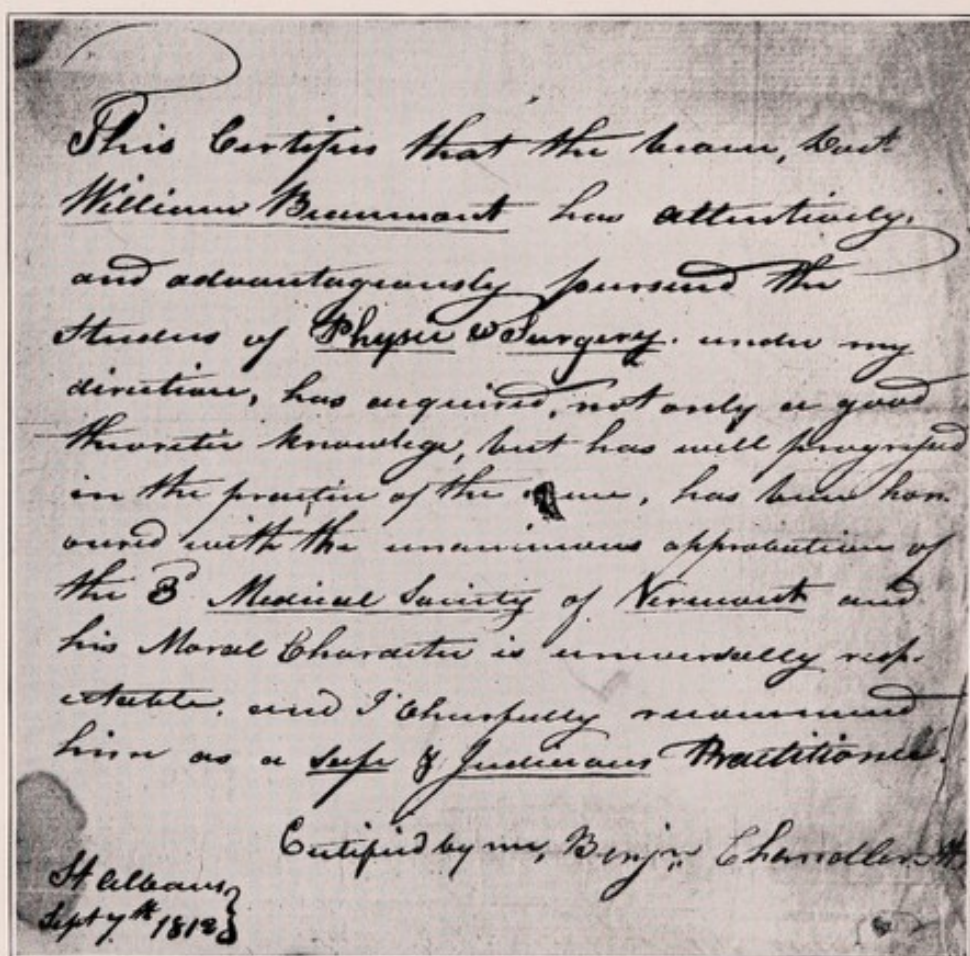 This Certifies that the bearer, Doct.
William Beaumont has attentively,
and advantageously pursued the
Studies of Physic & Surgery. under my
direction, has acquired, not only a good
theoretic knowledge, but has well progressed
in the practice of the same, has been hon
oured with the unanimous approbation of
the 3d Medical Society of Vermont and
his Moral Character is universally resp-
ectable. and I Chearfully recommend
him as a safe & Judicious Practitioner.
Certified by me, Benjn. Chandler
St Albans,
Sept 7th 1812